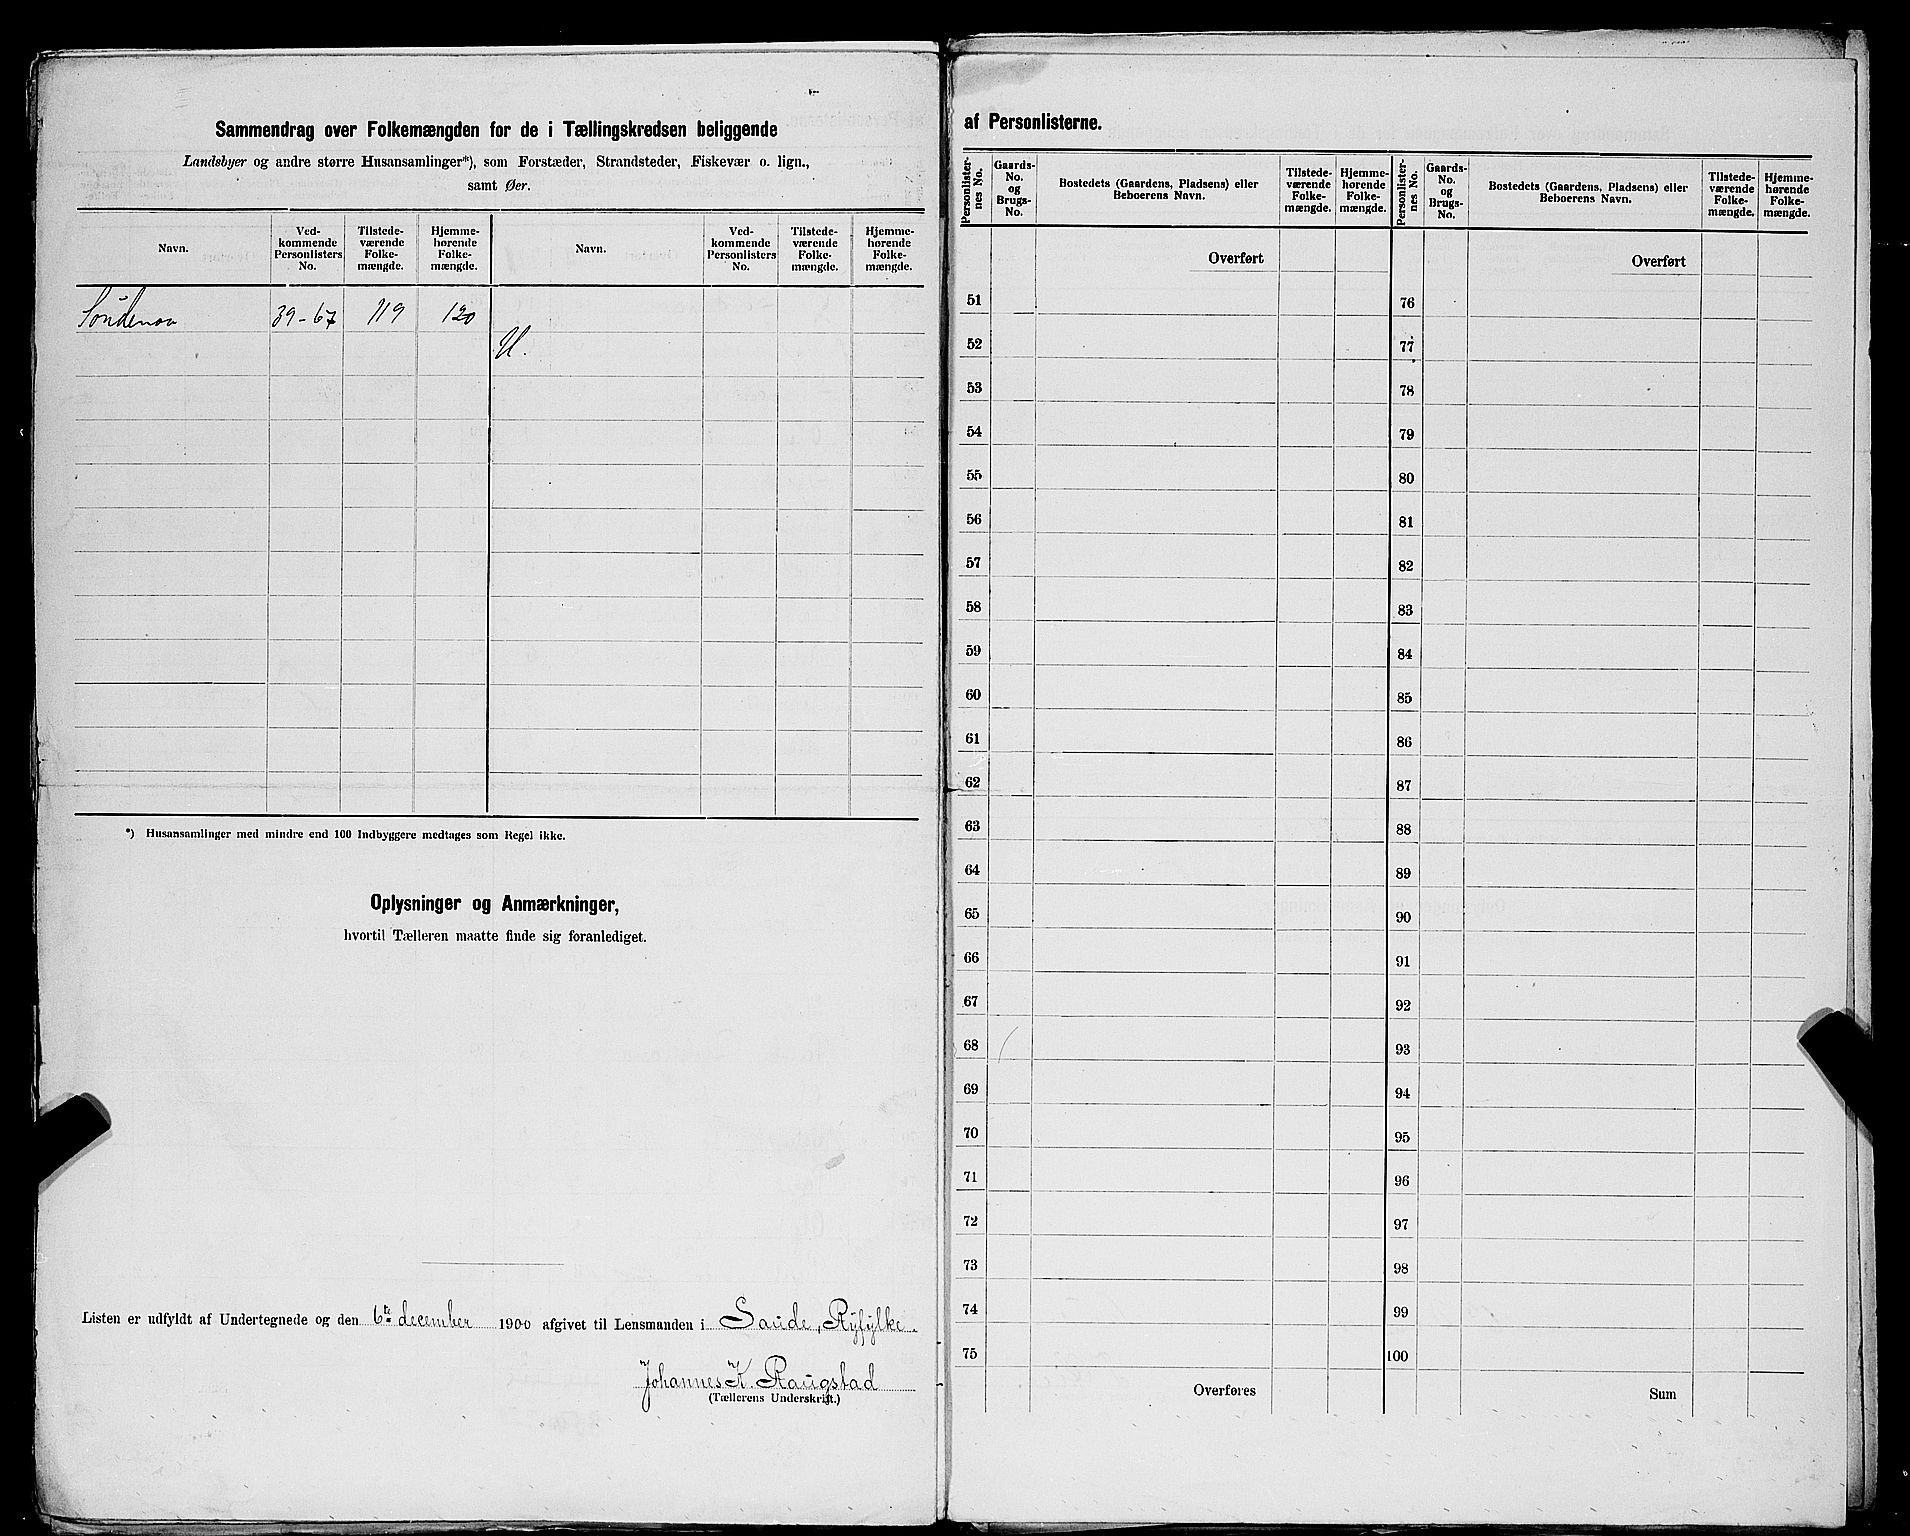 Sammendrag over Folkemængden for de i Tællingskredsen beliggende
Landsbyer og andre større Husansamlinger*), som Forstæder, Strandsteder, Fiskevær o. lign.,
samt Øer.
Navn. Ved-kommende Personlisters No. Tilstede-værende Folke-mængde. Hjemme-hørende Folke-mængde. Navn. Ved-kommende Personlisters No. Tilstede-værende Folke-mængde. Hjemme-hørende Folke-mængde.
39-67 119 120
*) Husansamlinger med mindre end 100 Indbyggere medtages som Regel ikke.
Oplysninger og Anmærkninger,
hvortil Tælleren maatte finde sig foranlediget.
Listen er udfyldt af Undertegnede og den 6te december 1900 afgivet til Lensmanden i Saude, Ryfylke.
Johannes K. Raugstad
(Tællerens Underskrift.)
af Personlisterne.
Personlister-nes No. Gaards-No. og Brugs-No. Bostedets (Gaardens, Pladsens) eller Beboerens Navn. Tilstede-værende Folke-mængde. Hjemme-hørende Folke-mængde. Personlister-nes No. Gaards-No. og Brugs-No. Bostedets (Gaardens, Pladsens) eller Beboerens Navn. Tilstede-værende Folke-mængde. Hjemme-hørende Folke-mængde.
Overført Overført
51 76
52 77
53 78
54 79
55 80
56 81
57 82
58 83
59 84
60 85
61 86
62 87
63 88
64 89
65 90
66 91
67 92
68 93
69 94
70 95
71 96
72 97
73 98
74 99
75 100
Overføres Sum